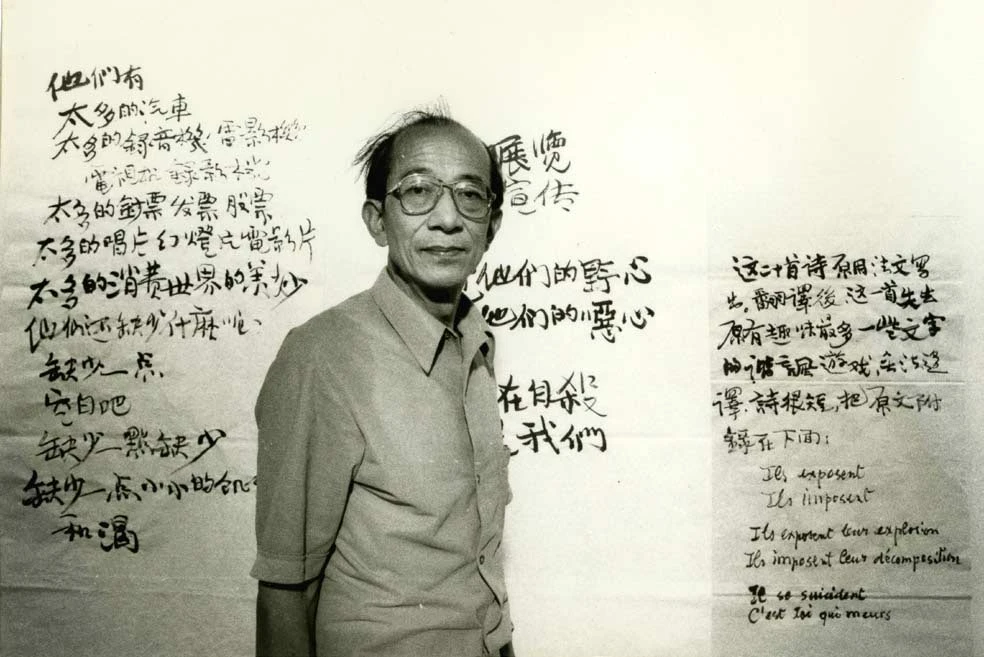 他們有
太多的汽車
太多的錄音機 電影機
電視机 錄影
太多的鈔票 发票 股票
太多的唱片幻燈片電影片
太多的消费世界的美妙
他们还缺少什麼呢
缺少一点
空白吧
缺少一點缺少
缺少一点小小的
和渴
展览
宣传
他们的野心
他們的惡心
在自殺
我們
这二十首诗原用法文写
出,翻譯後,这一首失去
原有趣味最多一些文字
的谐調遊戏,無法迻
译.詩很短,把原文附
錄在下面:
Ils exposent
Ils imposent
Ils exposent leur explosion
Ils imposent leur décomposition
Il se suicident
C'est toi qui meurs